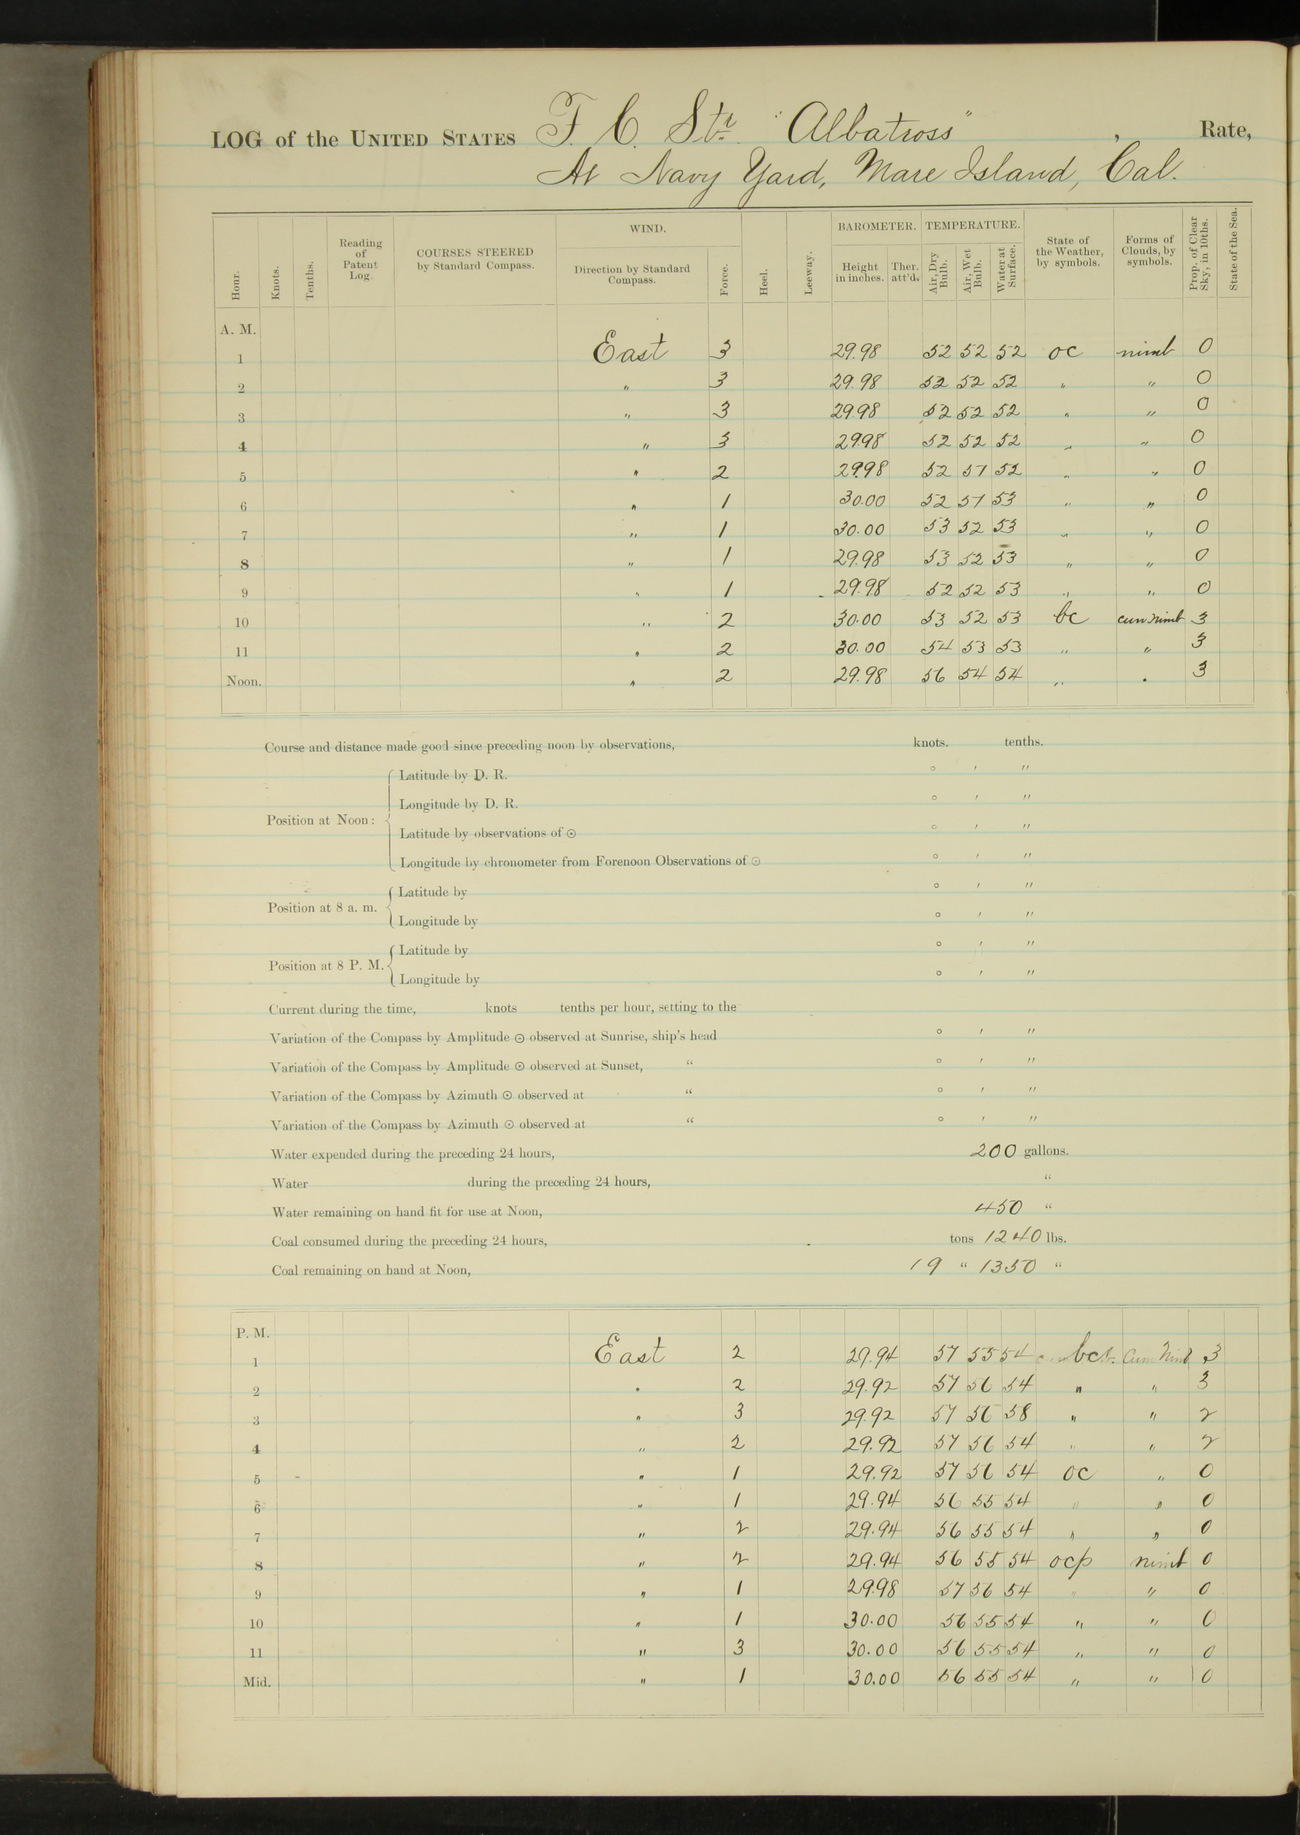 LOG of the UNITED STATES F. C. Str. "Albatross" , Rate,
At Navy Yard, Mare Island, Cal.
Hour. Knots. Tenths. Reading of Patent Log. COURSES STEERED by Standard Compass. WIND. Direction by Standard Compass. Force. Heel. Leeway. BAROMETER. Height in inches. Ther. att'd. TEMPERATURE. Air, Dry Bulb. Air, Wet Bulb. Water at Surface. State of the Weather, by symbols. Forms of Clouds, by symbols. Prop. of Clear Sky, in 10ths. State of the Sea.
A. M.
1 East 3 29.98 52 52 52 oc nimb 0
2 " 3 29.98 52 52 52 " " 0
3 " 3 29.98 52 52 52 " " 0
4 " 3 29.98 52 52 52 " " 0
5 " 2 29.98 52 51 52 " " 0
6 " 1 30.00 52 51 53 " " 0
7 " 1 30.00 53 52 53 " " 0
8 " 1 29.98 53 52 53 " " 0
9 " 1 29.98 52 52 53 " " 0
10 " 2 30.00 53 52 53 bc cum nimb 3
11 " 2 30.00 54 53 53 " " 3
Noon. " 2 29.98 56 54 54 " " 3
Course and distance made good since preceding noon by observations, knots. tenths.
Position at Noon:
Latitude by D. R. ° ′ ″
Longitude by D. R. ° ′ ″
Latitude by observations of ☉ ° ′ ″
Longitude by chronometer from Forenoon Observations of ☉ ° ′ ″
Position at 8 a. m.
Latitude by ° ′ ″
Longitude by ° ′ ″
Position at 8 P. M.
Latitude by ° ′ ″
Longitude by ° ′ ″
Current during the time, knots tenths per hour, setting to the
Variation of the Compass by Amplitude ☉ observed at Sunrise, ship's head ° ′ ″
Variation of the Compass by Amplitude ☉ observed at Sunset, " ° ′ ″
Variation of the Compass by Azimuth ☉ observed at " ° ′ ″
Variation of the Compass by Azimuth ☉ observed at " ° ′ ″
Water expended during the preceding 24 hours, 200 gallons.
Water during the preceding 24 hours, "
Water remaining on hand fit for use at Noon, 450 "
Coal consumed during the preceding 24 hours, tons 1240 lbs.
Coal remaining on hand at Noon, 19 " 1350 "
P. M.
1 East 2 29.94 57 55 54 Cum Nimb 3
2 " 2 29.92 57 56 54 " " 3
3 " 3 29.92 57 56 58 " " 2
4 " 2 29.92 57 56 54 " " 2
5 " 1 29.92 57 56 54 oc " 0
6 " 1 29.94 56 55 54 " " 0
7 " 2 29.94 56 55 54 " " 0
8 " 2 29.94 56 55 54 ocp nimb 0
9 " 1 29.98 57 56 54 " " 0
10 " 1 30.00 56 55 54 " " 0
11 " 3 30.00 56 55 54 " " 0
Mid. " 1 30.00 56 55 54 " " 0